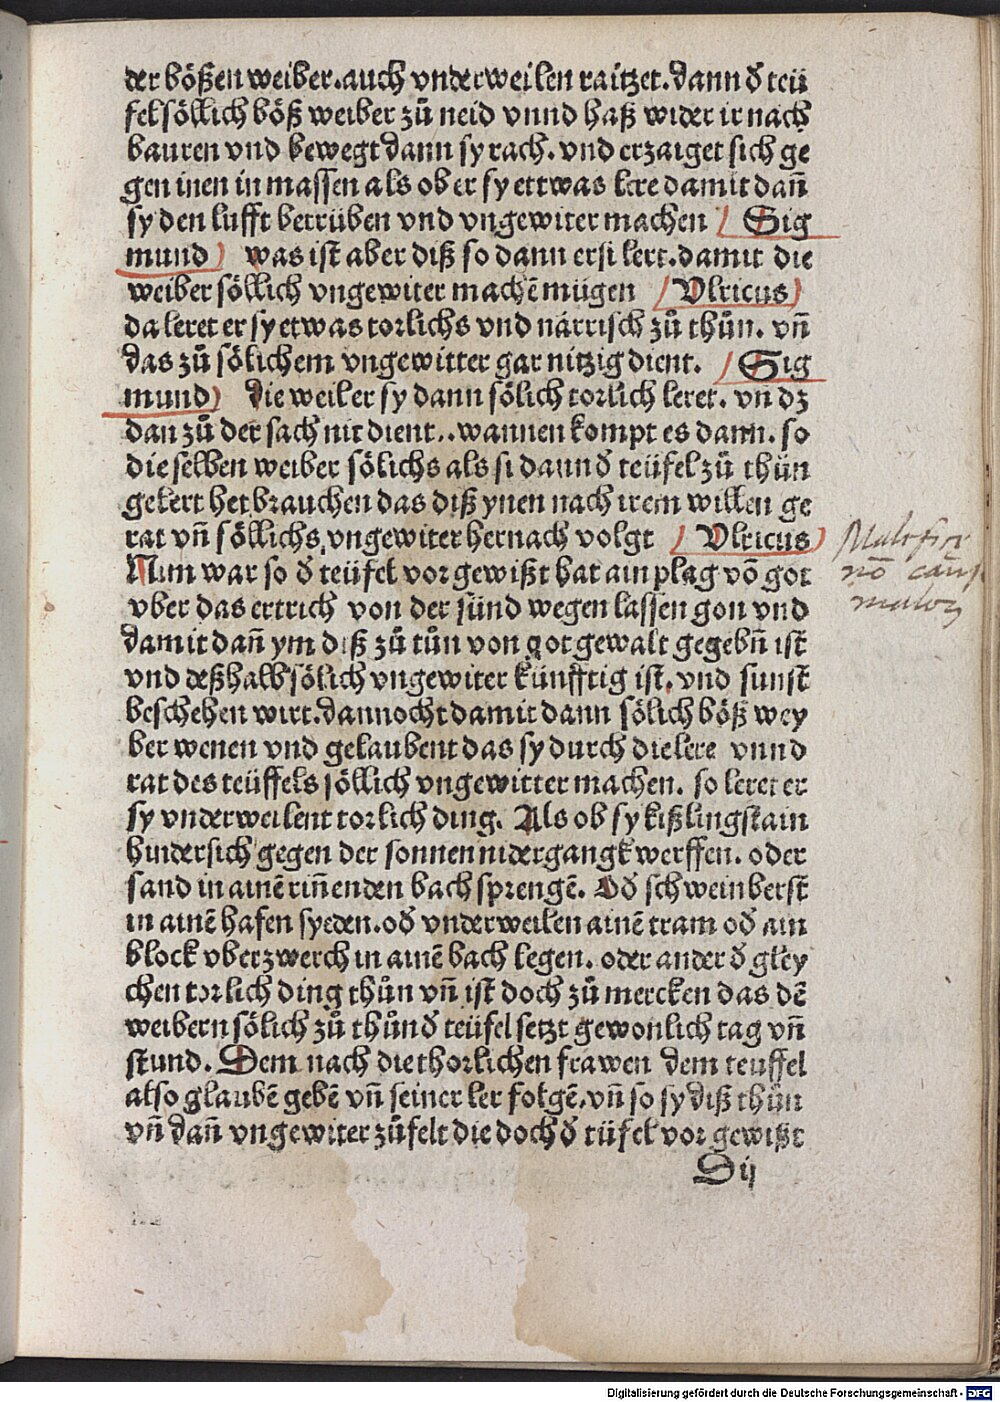 der bößen weiber.auch vnderweilen raitzet.dann đ teü
fel söllich böß weiber zů neid vnnd haß wider ir nach
bauren vnd bewegt dann sy rach. vnd erzaiget sich ge
gen inen in massen als ob er sy ettwas lere damit dañ
sy den lufft betrüben vnd vngewiter machen Sig
mund was ist aber diß so dann er si lert.damit die
weiber söllich vngewiter machē mügen Vlricus
da leret er sy etwas torlichs vnd närrisch zů thůn. vñ
das zů sölichem vngewitter gar nitzig dient. Sig
mund die weil er sy dann sölich torlich leret. vñ dz
dan zů der sach nit dient..wannen kompt es dann. so
die selben weiber sölichs als si dann đ teüfel zů thůn
gelert het brauchen das diß ynen nach irem willen ge
rat vñ söllichs vngewiter hernach volgt Vlricus
Nun war so đ teüfel vor gewißt hat ain plag vō got
vber das ertrich von der sünd wegen lassen gon vnd
damit dañ ym diß zů tůn von got gewalt gegebñ ist
vnd deßhalb sölich vngewiter künfftig ist. vnd sunst
beschehen wirt.dannocht damit dann sölich böß wey
ber wenen vnd gelaubent das sy durch die lere vnnd
rat des teüffels söllich vngewitter machen. so leret er
sy vnderweilent torlich ding. Als ob sy kißlingstain
hindersich gegen der sonnen nidergangk werffen. oder
sand in ainē riñenden bach sprengē. Ođ schweinberst
in ainē hafen syeden.ođ vnderweilen ainē tram ođ ain
block vberzwerch in ainē bach legen. oder ander đ gley
chen torlich ding thůn vñ ist doch zů mercken das dē
weibern sölich zů thůn đ teüfel setzt gewonlich tag vñ
stund. Dem nach die thorlichen frawen dem teuffel
also glaubē gebē vñ seiner ler folgē.vñ so sy diß thůn
vñ dañ vngewiter zůfelt die doch đ tüfel vor gewißt
D ij
Malefici
nō caūs
malor
Digitalisierung gefördert durch die Deutsche Forschungsgemeinschaft - DFG